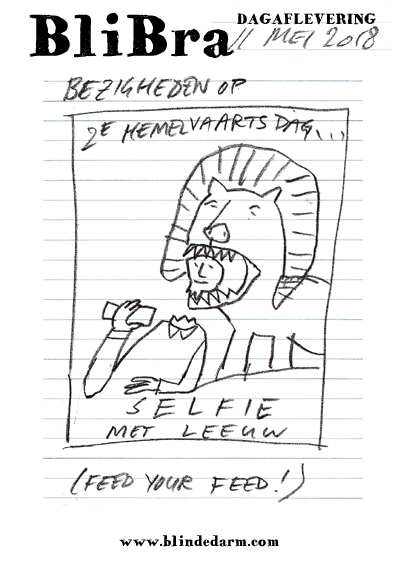 BliBra
DAGAFLEVERING
11 MEI 2018
BEZIGHEDEN OP
2E HEMELVAARTSDAG...
SELFIE
MET LEEUW
(FEED YOUR FEED!)
www.blindedarm.com